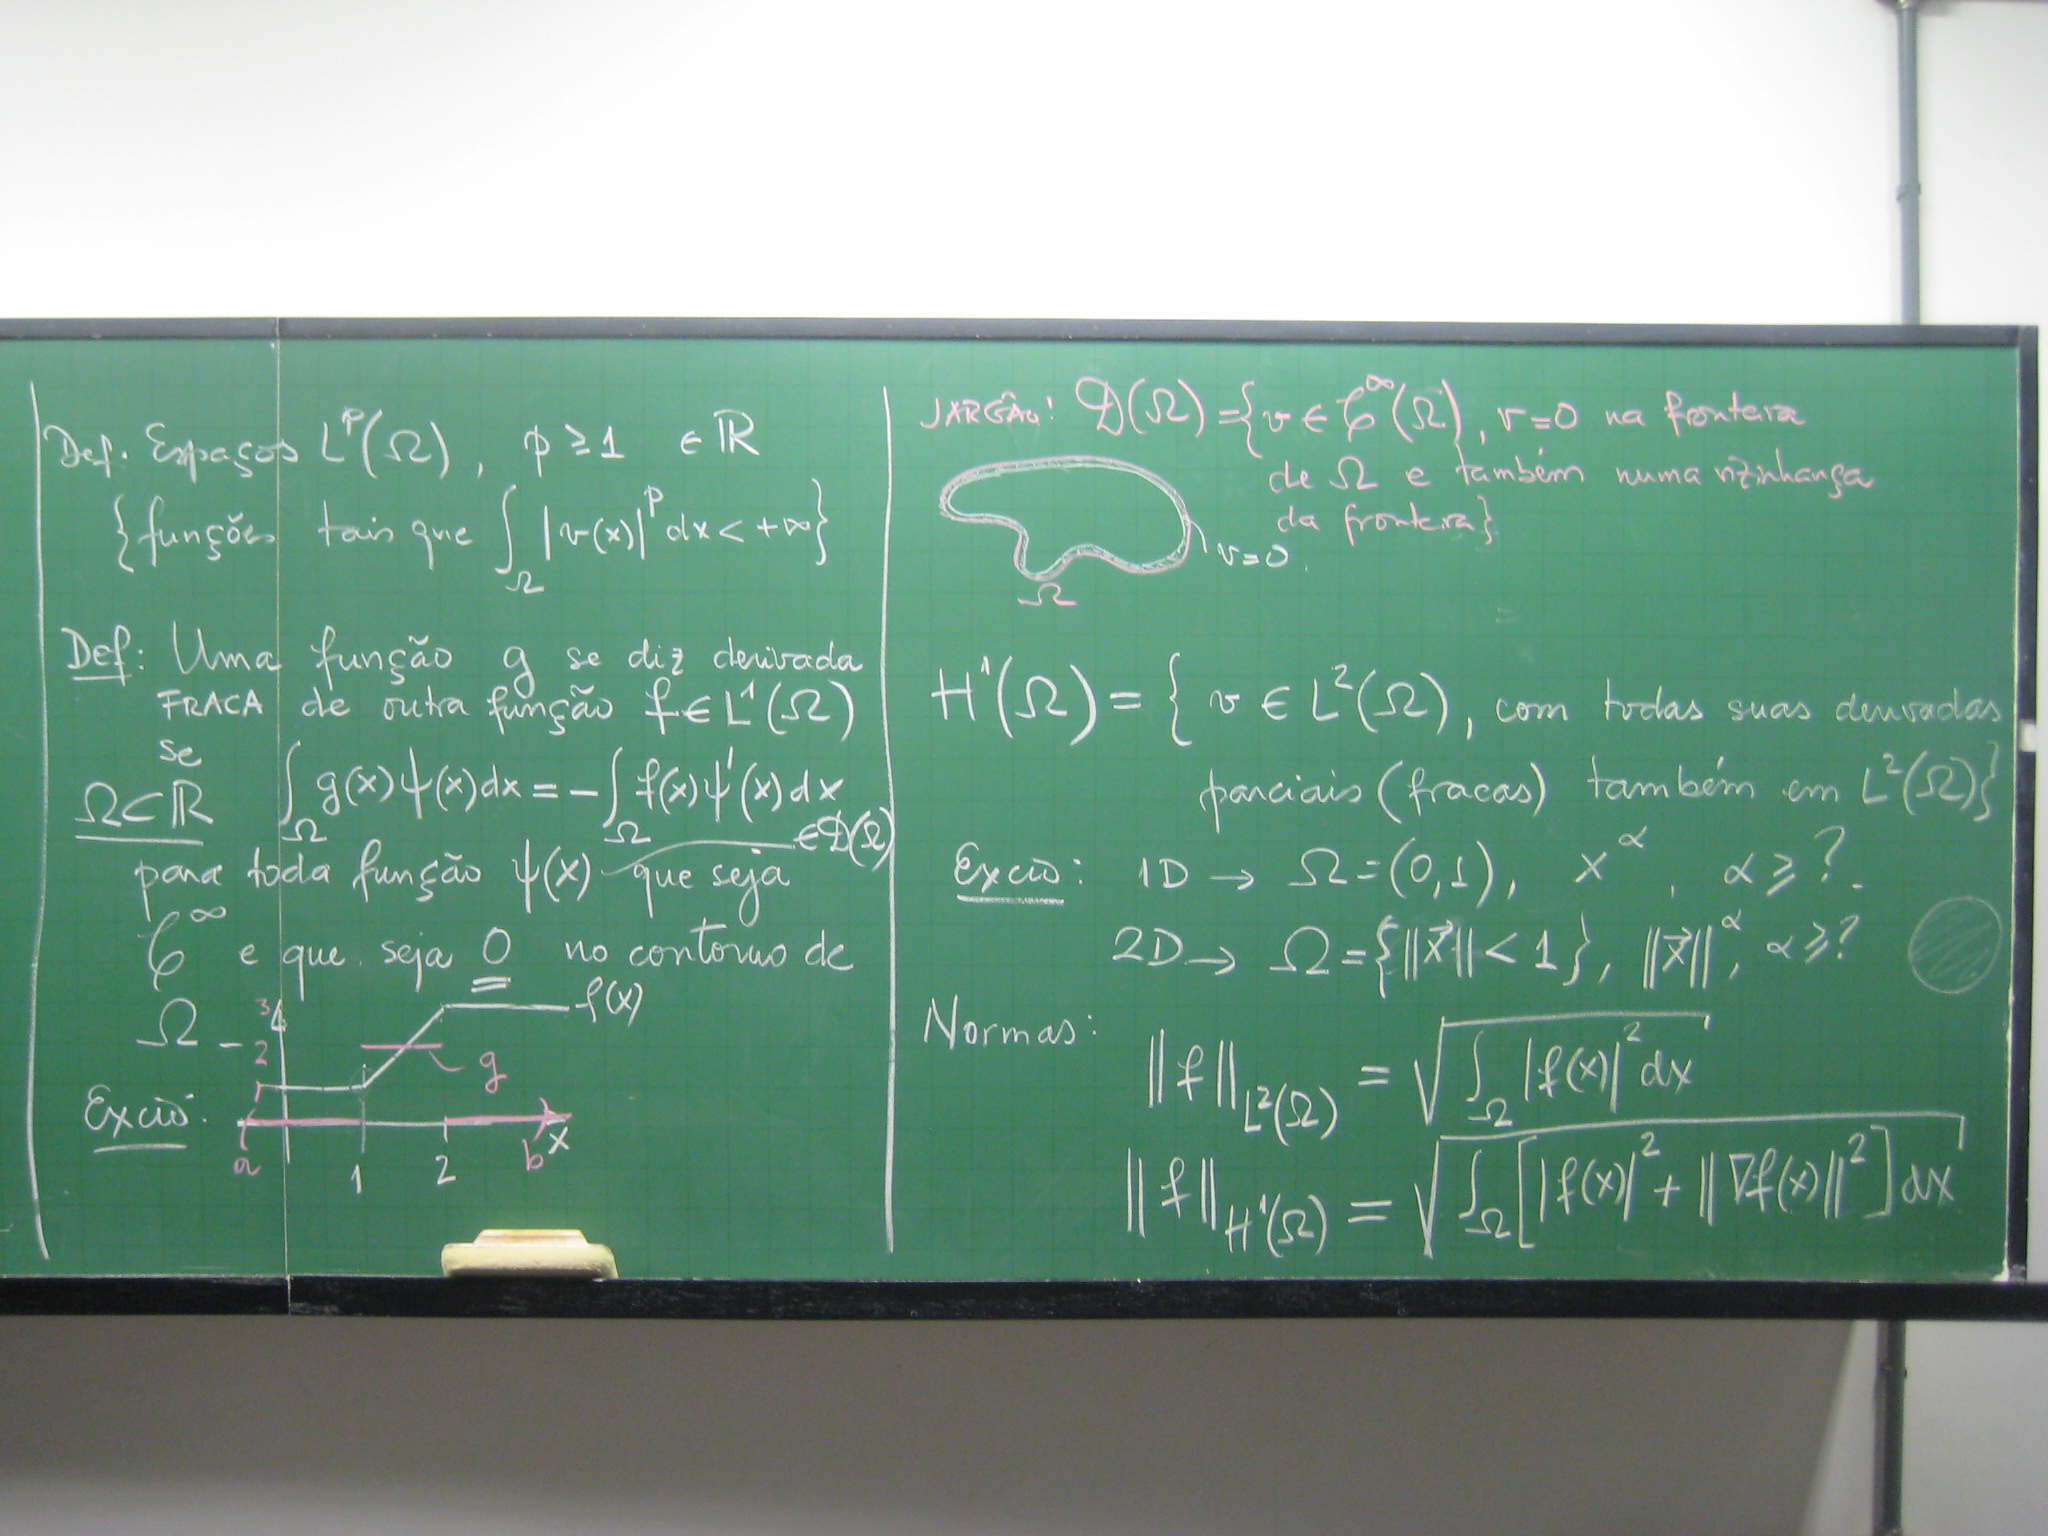 Def. Espaços L^p(Ω), p ≥ 1 ∈ ℝ
{funções tais que ∫_Ω |v(x)|^p dx < +∞}
Def: Uma função g se diz derivada
FRACA de outra função f ∈ L^1(Ω)
se
Ω⊂ℝ ∫_Ω g(x)ψ(x)dx = -∫_Ω f(x)ψ'(x)dx
∈𝒟(Ω)
para toda função ψ(x) que seja
𝒞^∞ e que seja 0 no contorno de
Ω
3
f(x)
2
g
1
Excio:
a 1 2 b x
JARGÃO! 𝒟(Ω) = {v ∈ 𝒞^∞(Ω), v=0 na fronteira
de Ω e também numa vizinhança
da fronteira}
v=0.
Ω
H^1(Ω) = { v ∈ L^2(Ω), com todas suas derivadas
parciais (fracas) também em L^2(Ω)}
Excio: 1D → Ω=(0,1), x^α, α ≥ ?.
2D → Ω={‖x⃗‖ < 1}, ‖x⃗‖^α, α ≥ ?
Normas:
‖f‖_{L^2(Ω)} = √(∫_Ω |f(x)|^2 dx)
‖f‖_{H^1(Ω)} = √(∫_Ω [|f(x)|^2 + ‖∇f(x)‖^2] dx)